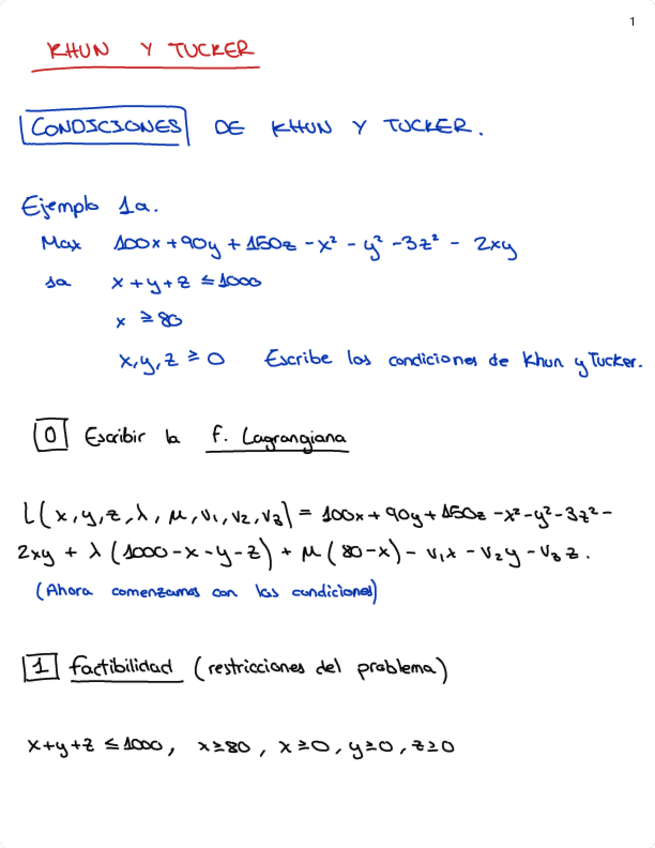 1
KHUN Y TUCKER
CONDICIONES DE KHUN Y TUCKER.
Ejemplo 1a.
Max 100x + 90y + 150z - x² - y² - 3z² - 2xy
sa x + y + z ≤ 1000
x ≥ 80
x, y, z ≥ 0 Escribe las condiciones de Khun y Tucker.
0 Escribir la f. Lagrangiana
L(x, y, z, λ, μ, v₁, v₂, v₃) = 100x + 90y + 150z - x² - y² - 3z² -
2xy + λ (1000 - x - y - z) + μ (80 - x) - v₁x - v₂y - v₃z.
(Ahora comenzamos con las condiciones)
1 factibilidad (restricciones del problema)
x + y + z ≤ 1000, x ≥ 80, x ≥ 0, y ≥ 0, z ≥ 0